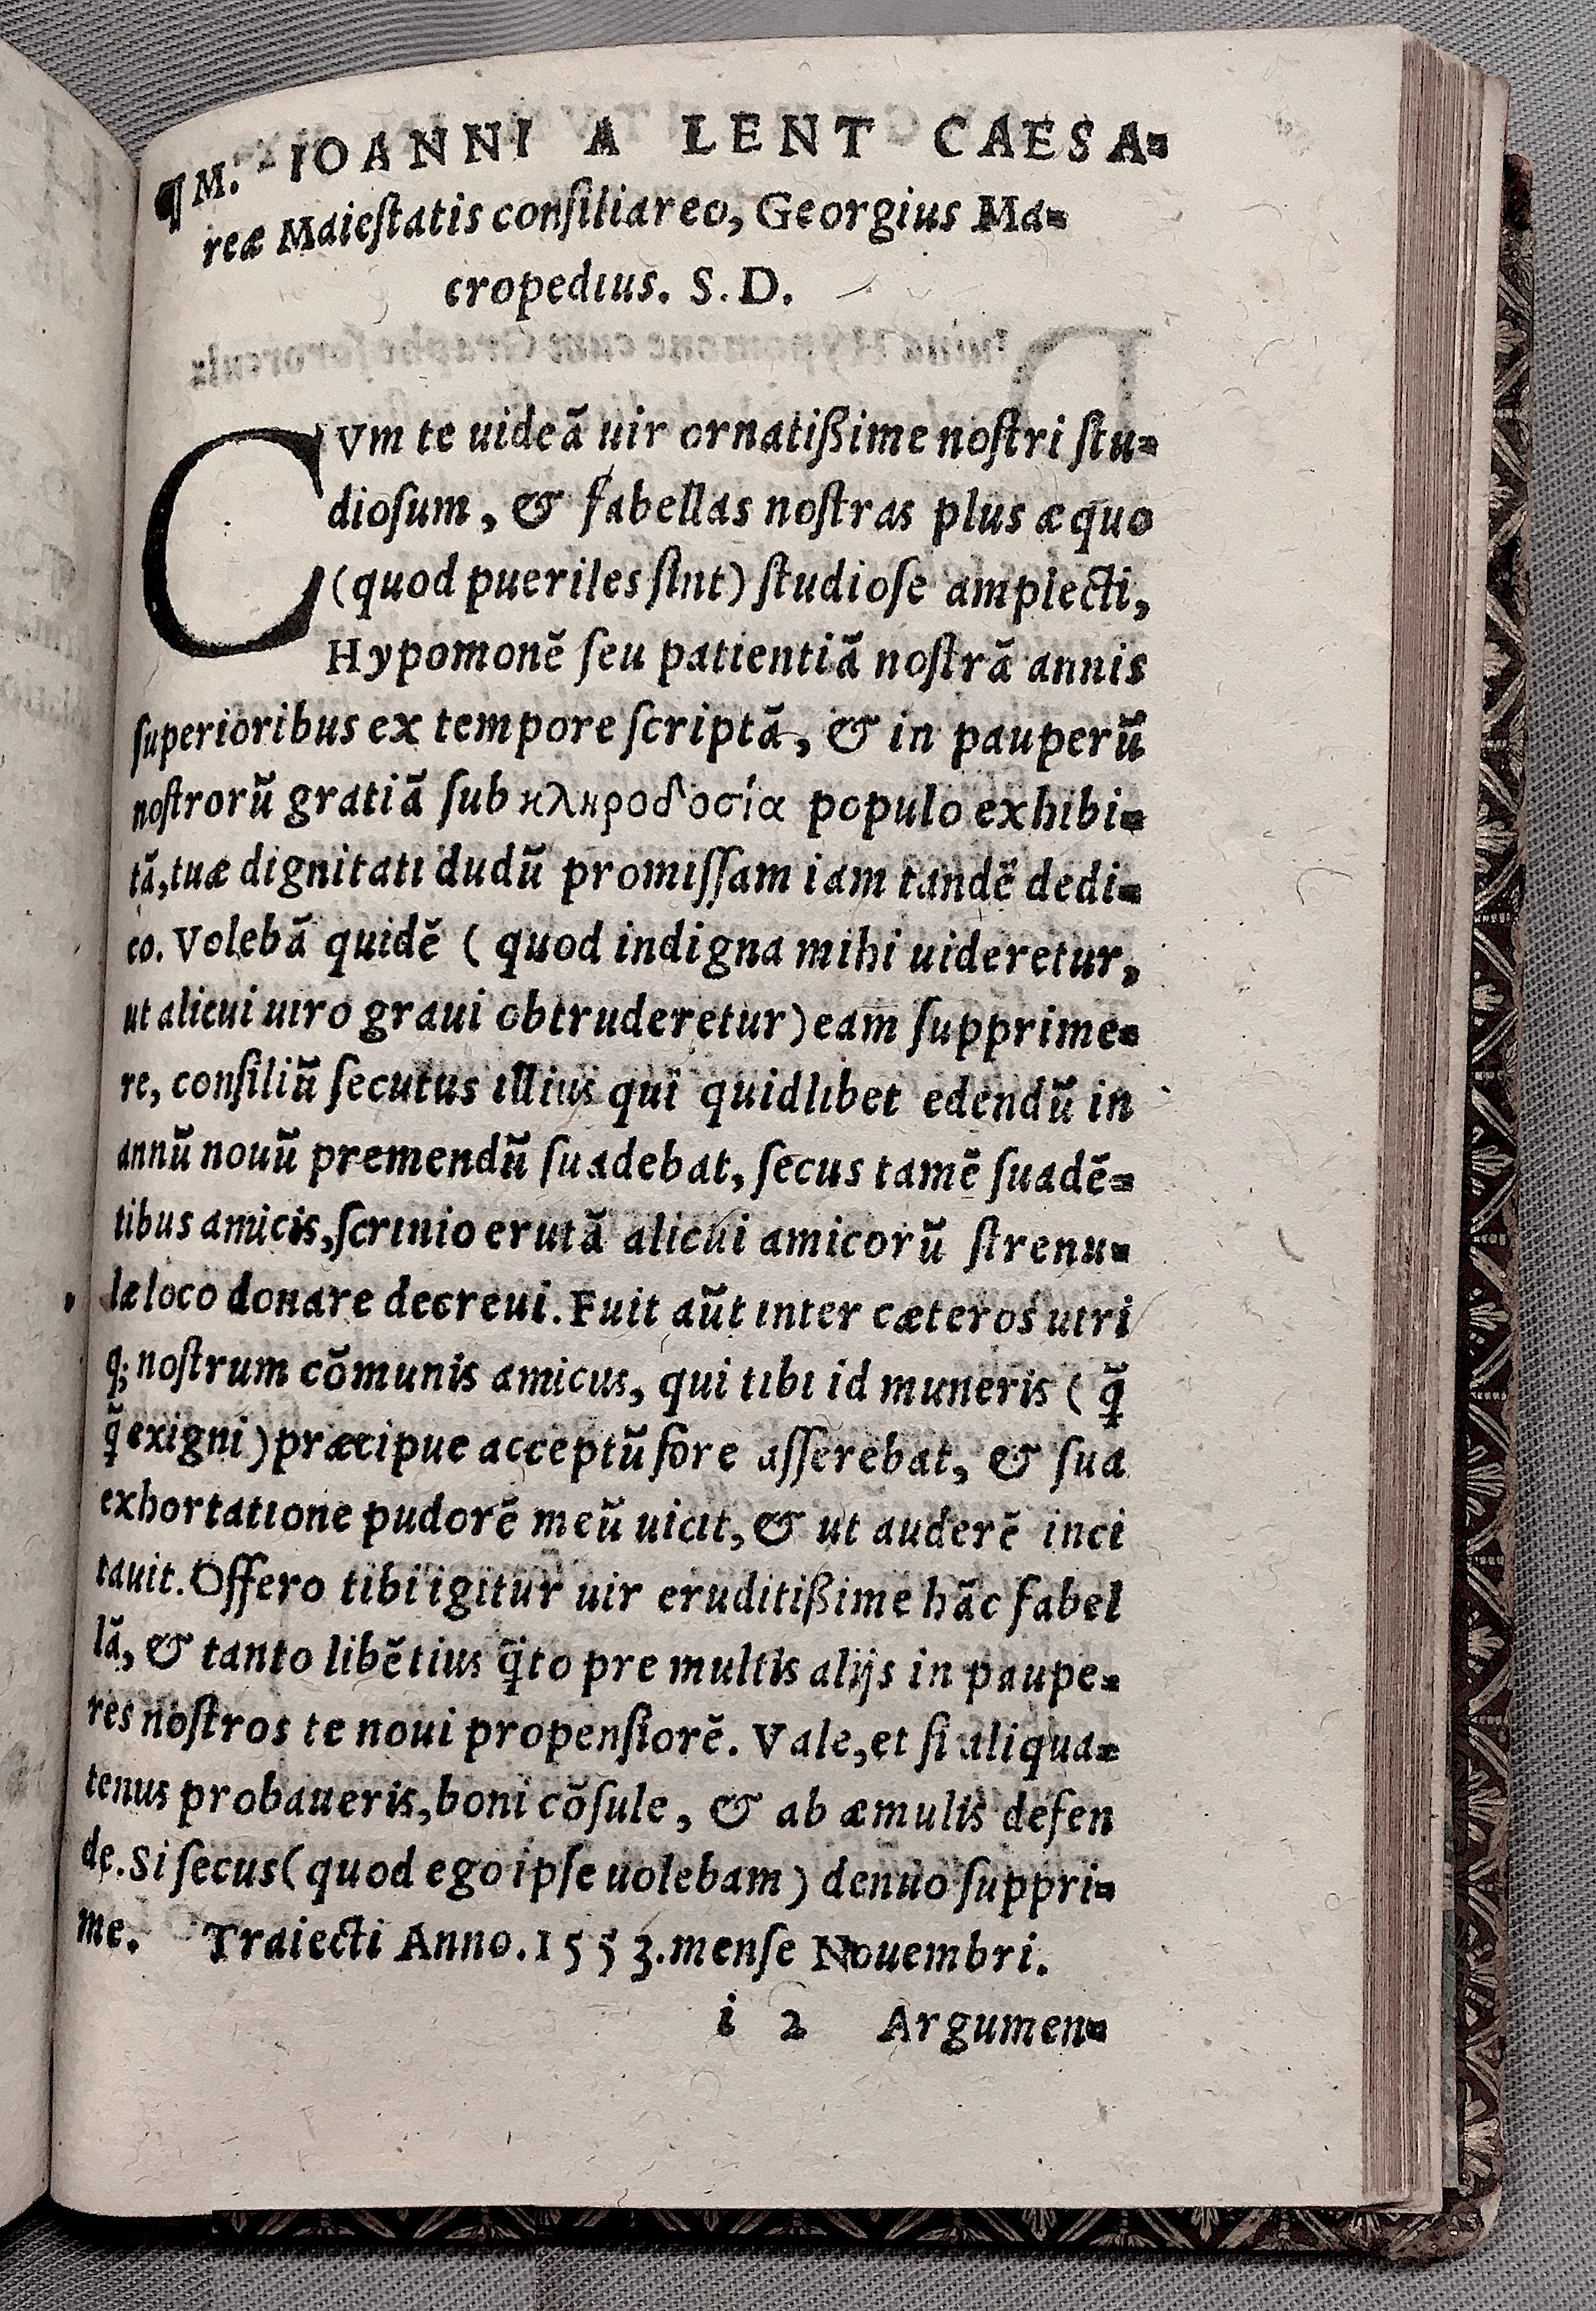 ¶ M. IOANNI A LENT CAESA-
reæ Maieſtatis conſiliareo, Georgius Ma-
cropedius. S. D.
CVm te uideā uir ornatißime noſtri ſtu-
dioſum, & fabellas noſtras plus æquo
(quod pueriles ſint) ſtudioſe amplecti,
Hypomonē ſeu patientiā noſtrā annis
ſuperioribus ex tempore ſcriptā, & in pauperū
noſtrorū gratiā ſub κληροδοσία populo exhibi-
tā, tuæ dignitati dudū promiſſam iam tandē dedi-
co. Volebā quidē ( quod indigna mihi uideretur,
ut alicui uiro graui obtruderetur) eam ſupprime-
re, conſiliū ſecutus illius qui quidlibet edendū in
annū nouū premendū ſuadebat, ſecus tamē ſuadē-
tibus amicis, ſcrinio erutā alicui amicorū ſtrenu-
læ loco donare decreui. Fuit aūt inter cæteros utri
q; noſtrum cōmunis amicus, qui tibi id muneris ( q̄
q̄ exigni) præcipue acceptū fore aſſerebat, & ſua
exhortatione pudorē meū uicit, & ut auderē inci
tauit. Offero tibi igitur uir eruditißime hāc fabel
lā, & tanto libētius q̄to pre multis alijs in paupe-
res noſtros te noui propenſiorē. Vale, et ſi aliqua-
tenus probaueris, boni cōſule, & ab æmulis defen
de. Si ſecus (quod ego ipſe uolebam) denuo ſuppri-
me. Traiecti Anno. 1553. menſe Nouembri.
i 2 Argumen-